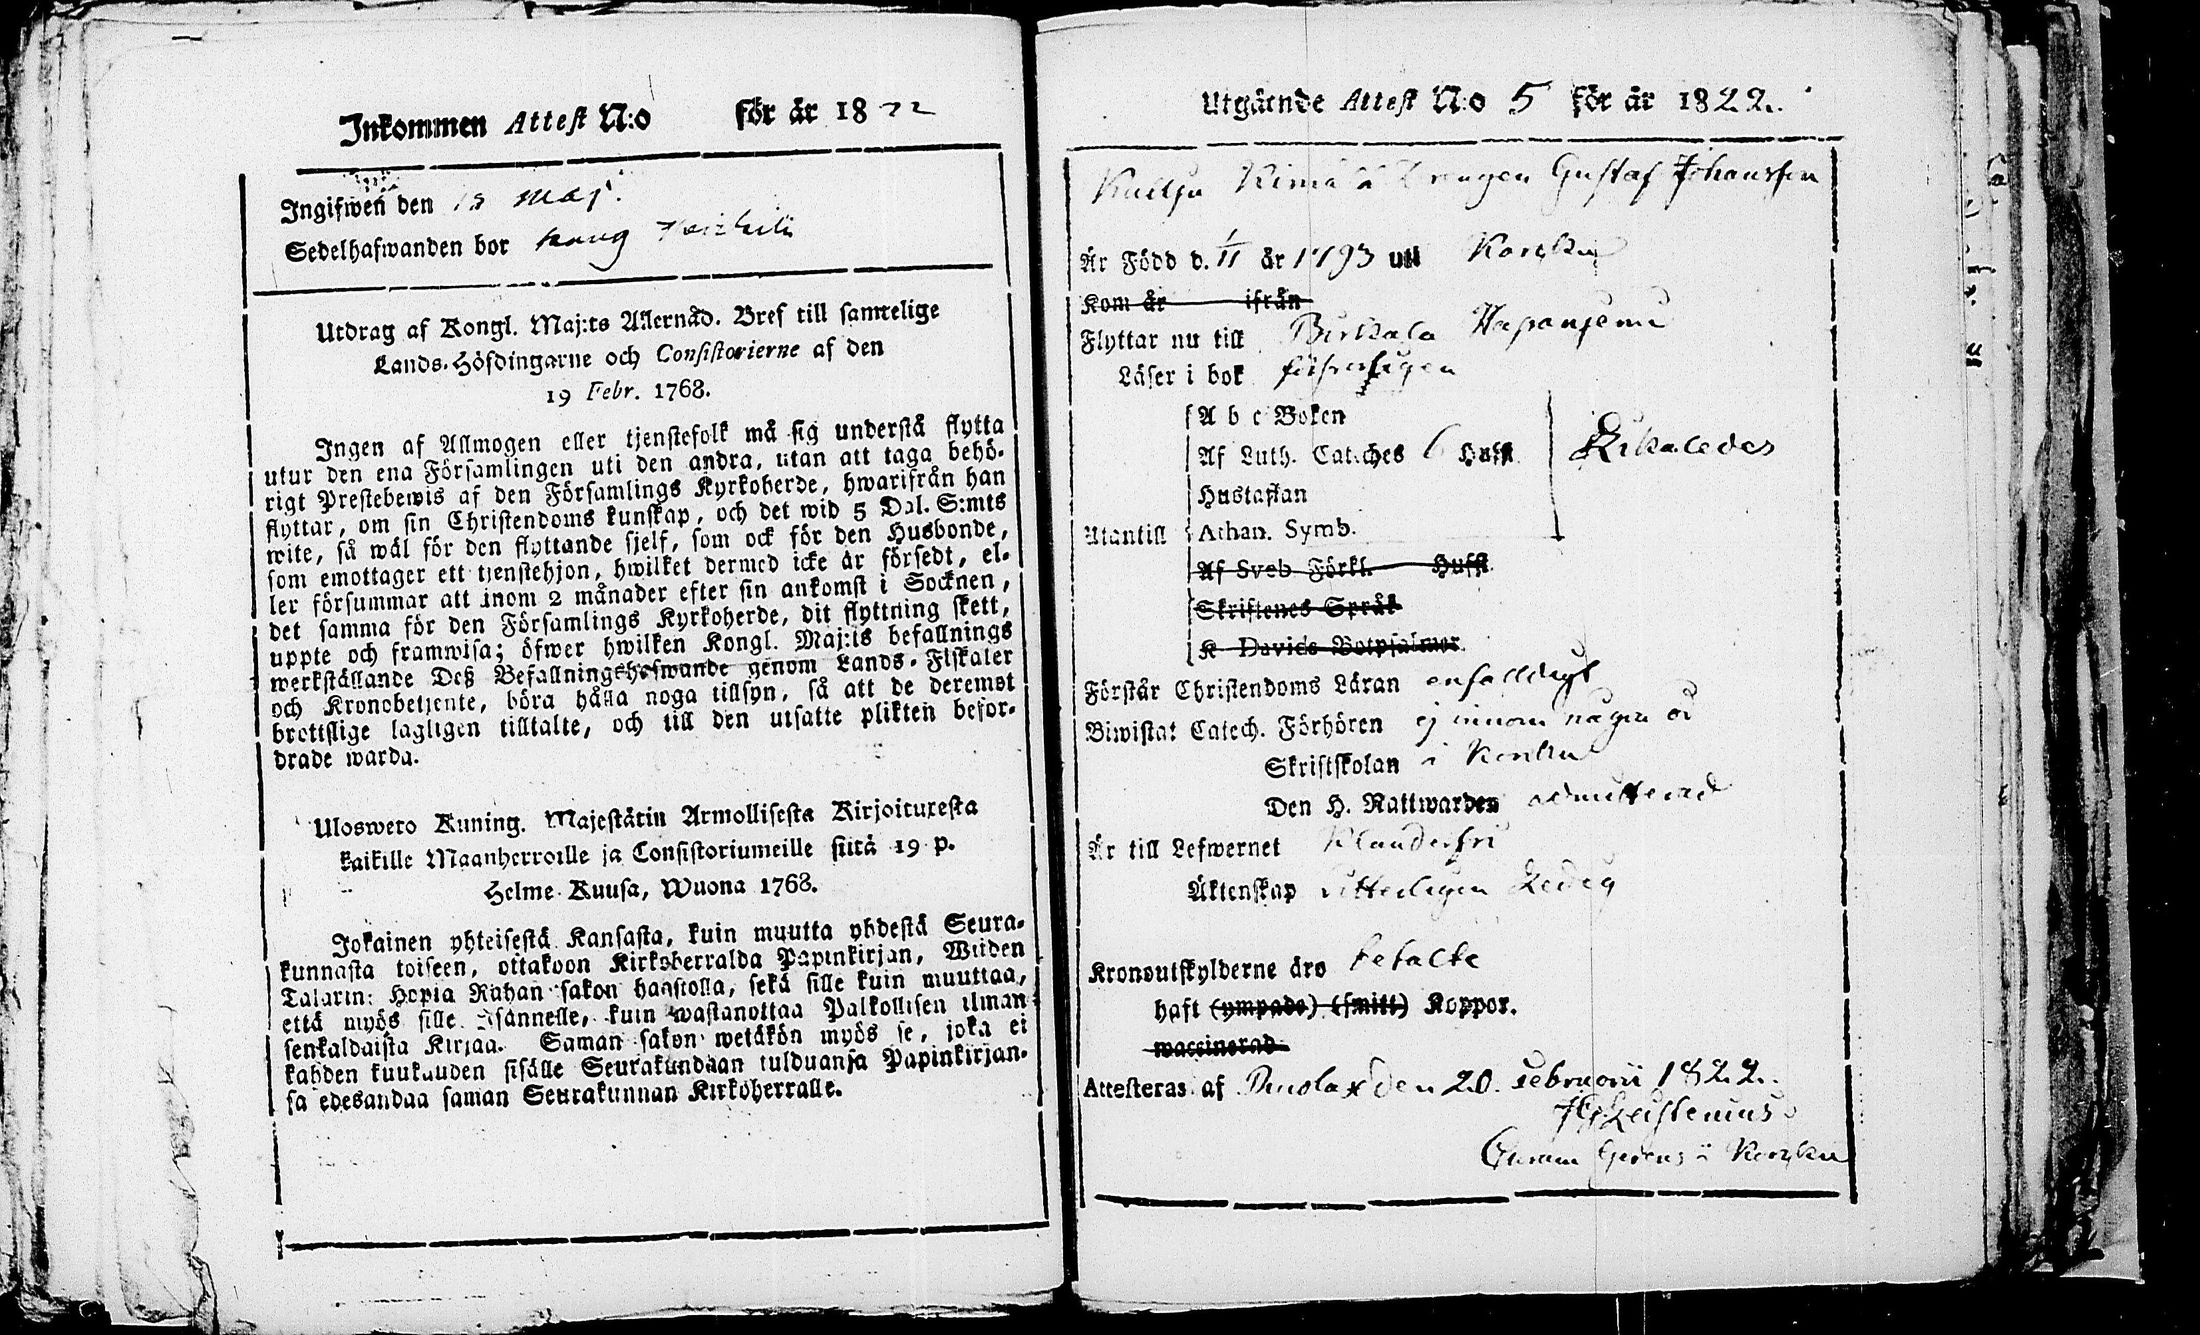 Inkommen Attest N:o för år 1822
Ingifwen den 18 Maj.
Sedelhafwanden bor
Utdrag af Kongl. Maj:ts Allernåd. Bref till samtelige
Lands-Höfdingarne och Consistorierne af den
19 Febr. 1768.
Ingen af Allmogen eller tjenstefolk må sig understå flytta
utur den ena Församlingen uti den andra, utan att taga behö-
rigt Prestebewis af den Församlings Kyrkoherde, hwarifrån han
flyttar, om sin Christendoms kunskap, och det wid 5 Dal. S:mts
wite, så wäl för den flyttande sjelf, som ock för den Husbonde,
som emottager ett tjenstehjon, hwilket dermed icke är försedt, el-
ler försummar att inom 2 månader efter sin ankomst i Socknen,
det samma för den Församlings Kyrkoherde, dit flyttning skett,
uppte och framwisa; öfwer hwilken Kongl. Maj:ts befallnings
werkställande Deß Befallningshafwande genom Lands-Fiskaler
och Kronobetjente, böra hålla noga tillsyn, så att de deremot
brottslige lagligen tilltalte, och till den utsatte plikten befor-
drade warda.
Uloswero Kuning. Majestätin Armollisesta Kirjoituxesta
kaikille Maanherroille ja Consistoriumeille siitä 19 p.
Helme-Kuusa, Wuona 1768.
Jokainen yhteisestä Kansasta, kuin muutta yhdestä Seura-
kunnasta toiseen, ottakoon Kirkoherralda Papinkirjan, Wiiden
Talarin: Hopia Rahan sakon haastolla, sekä sille kuin muuttaa,
että myös sille Isännelle, kuin wastanottaa Palkollisen ilman
senkaldaista Kirjaa. Saman sakon wetäkön myös se, joka ei
kahden kuukauden sisälle Seurakundaan tulduansa Papinkirjan-
sa edesandaa saman Seurakunnan Kirkoherralle.
Utgående Attest N:o 5 för år 1822.
Drengen Gustaf Johansson
Är Född d. 1/11 år 1793 uti Karkku
Kom år ifrån
Flyttar nu till Birkala Hapaniemi
Läser i bok
A b c Boken
Af Luth. Cateches 6 Hufst.
Hustaflan
Utantill Athan. Symb.
Af Sveb. Förkl. Hufst.
Skriftenes Språk
K Davids Botpsalmer
Förstår Christendoms Läran enfalldigt
Biwistat Catech. Förhören ej innom någre år
Skriftskolan i Karkku
Den H. Nattwarden admitterad
Är till Lefwernet Klanderfri
Äktenskap Ledig
Kronoutskylderne äro betalte
haft (ympade) (smitt) Koppor.
waccinerad
Attesteras af den 20 Februarii 1822.
i Karkku